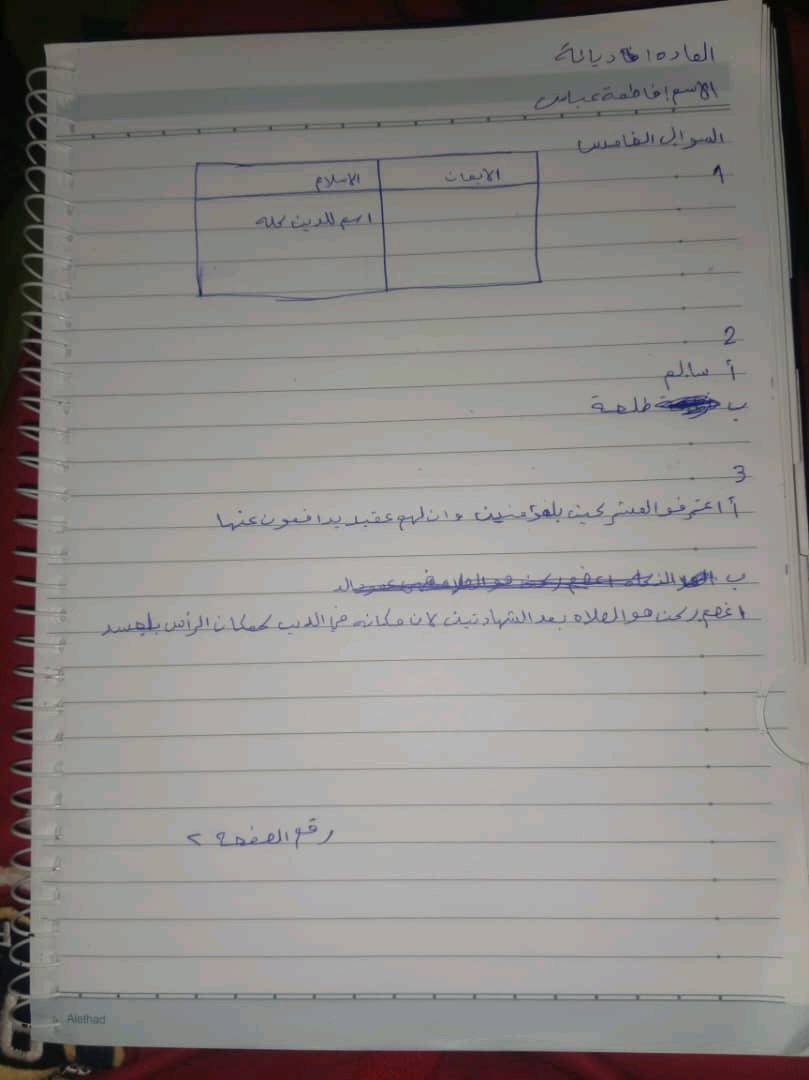 المادة ديانة
الاسم فاطمة عباس
السوال الخامس
1
الايمان الاسلام
اسم للدين كله
2
أ سالم
ب طلحة
3
أ اعترفو المشركين بلمؤمنين وان لهم عقيد يدافعون عنها
ب
اعضم ركن هو الصلاه بعد الشهادتين لان مكانه في الدين كمكان الرأس بلجسد
رقم الصفحة ٢
Alethad